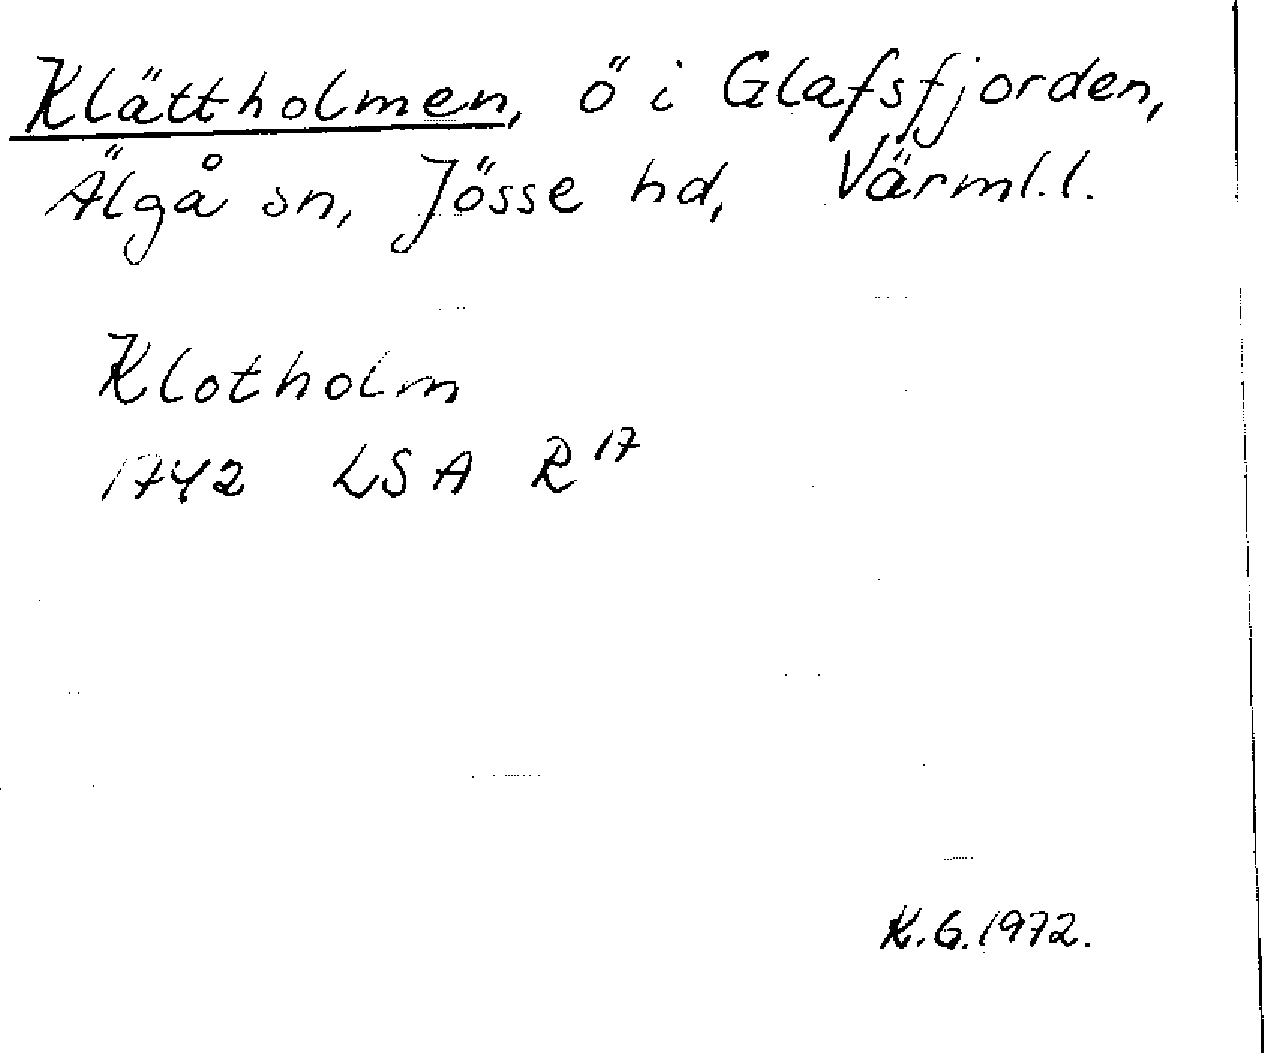 Klättholmen, ö i Glafsfjorden,
Älgå sn, Jösse hd, Värml. l.
Klotholm
1742 LSA R 17
K.G. 1972.